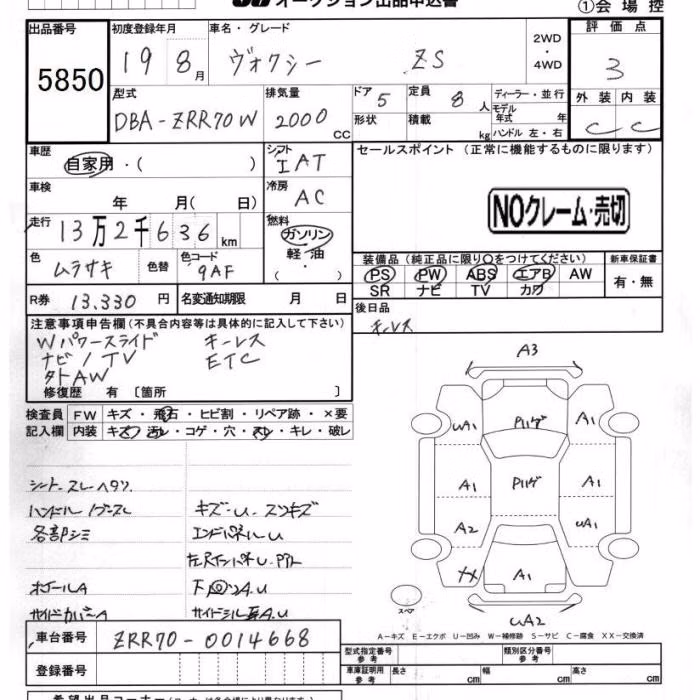 オークション出品申込書 ①会場控
出品番号 初度登録年月 車名・グレード 評価点
5850 19 8月 ヴォクシー ZS 2WD ・4WD 3
型式 排気量 ドア 5 定員 8人 ディーラー・並行 外装 内装
DBA-ZRR70W 2000cc 形状 積載 kg モデル年式 年 ハンドル 左・右 C C
車歴 シフト セールスポイント (正常に機能するものに限ります)
自家用・( ) IAT
車検 冷房
年 月( 日) AC NOクレーム・売切
走行 燃料
13万2千636km ガソリン
色 色替 色コード 軽・油 装備品 (純正品に限り○をつけてください) 新車保証書
ムラサキ 9AF ・( ) PS PW ABS エアB AW 有・無
SR ナビ TV カワ
R券 13,330円 名変通知期限 月 日 後日品
キーレス
注意事項申告欄 (不具合内容等は具体的に記入して下さい)
Wパワースライド キーレス
ナビ/TV ETC
タトAW
修復歴 有 〔箇所 〕
検査員 FW キズ・飛石・ヒビ割・リペア跡・×要
記入欄 内装 キズ・汚レ・コゲ・穴・スレ・キレ・破レ
A3
uA1 A1
A1 A1
A2 uA1
A1
スペア
uA2
シート、スレヘタリ
各部シミ エンドパネルU
A-キズ E-エクボ U-凹み W-補修跡 S-サビ C-腐食 XX-交換済
車台番号 ZRR70-0014668
型式指定番号 参考 類別区分番号 参考
登録番号 車庫証明用 参考 長さ cm 幅 cm 高さ cm
希望出品コーナー